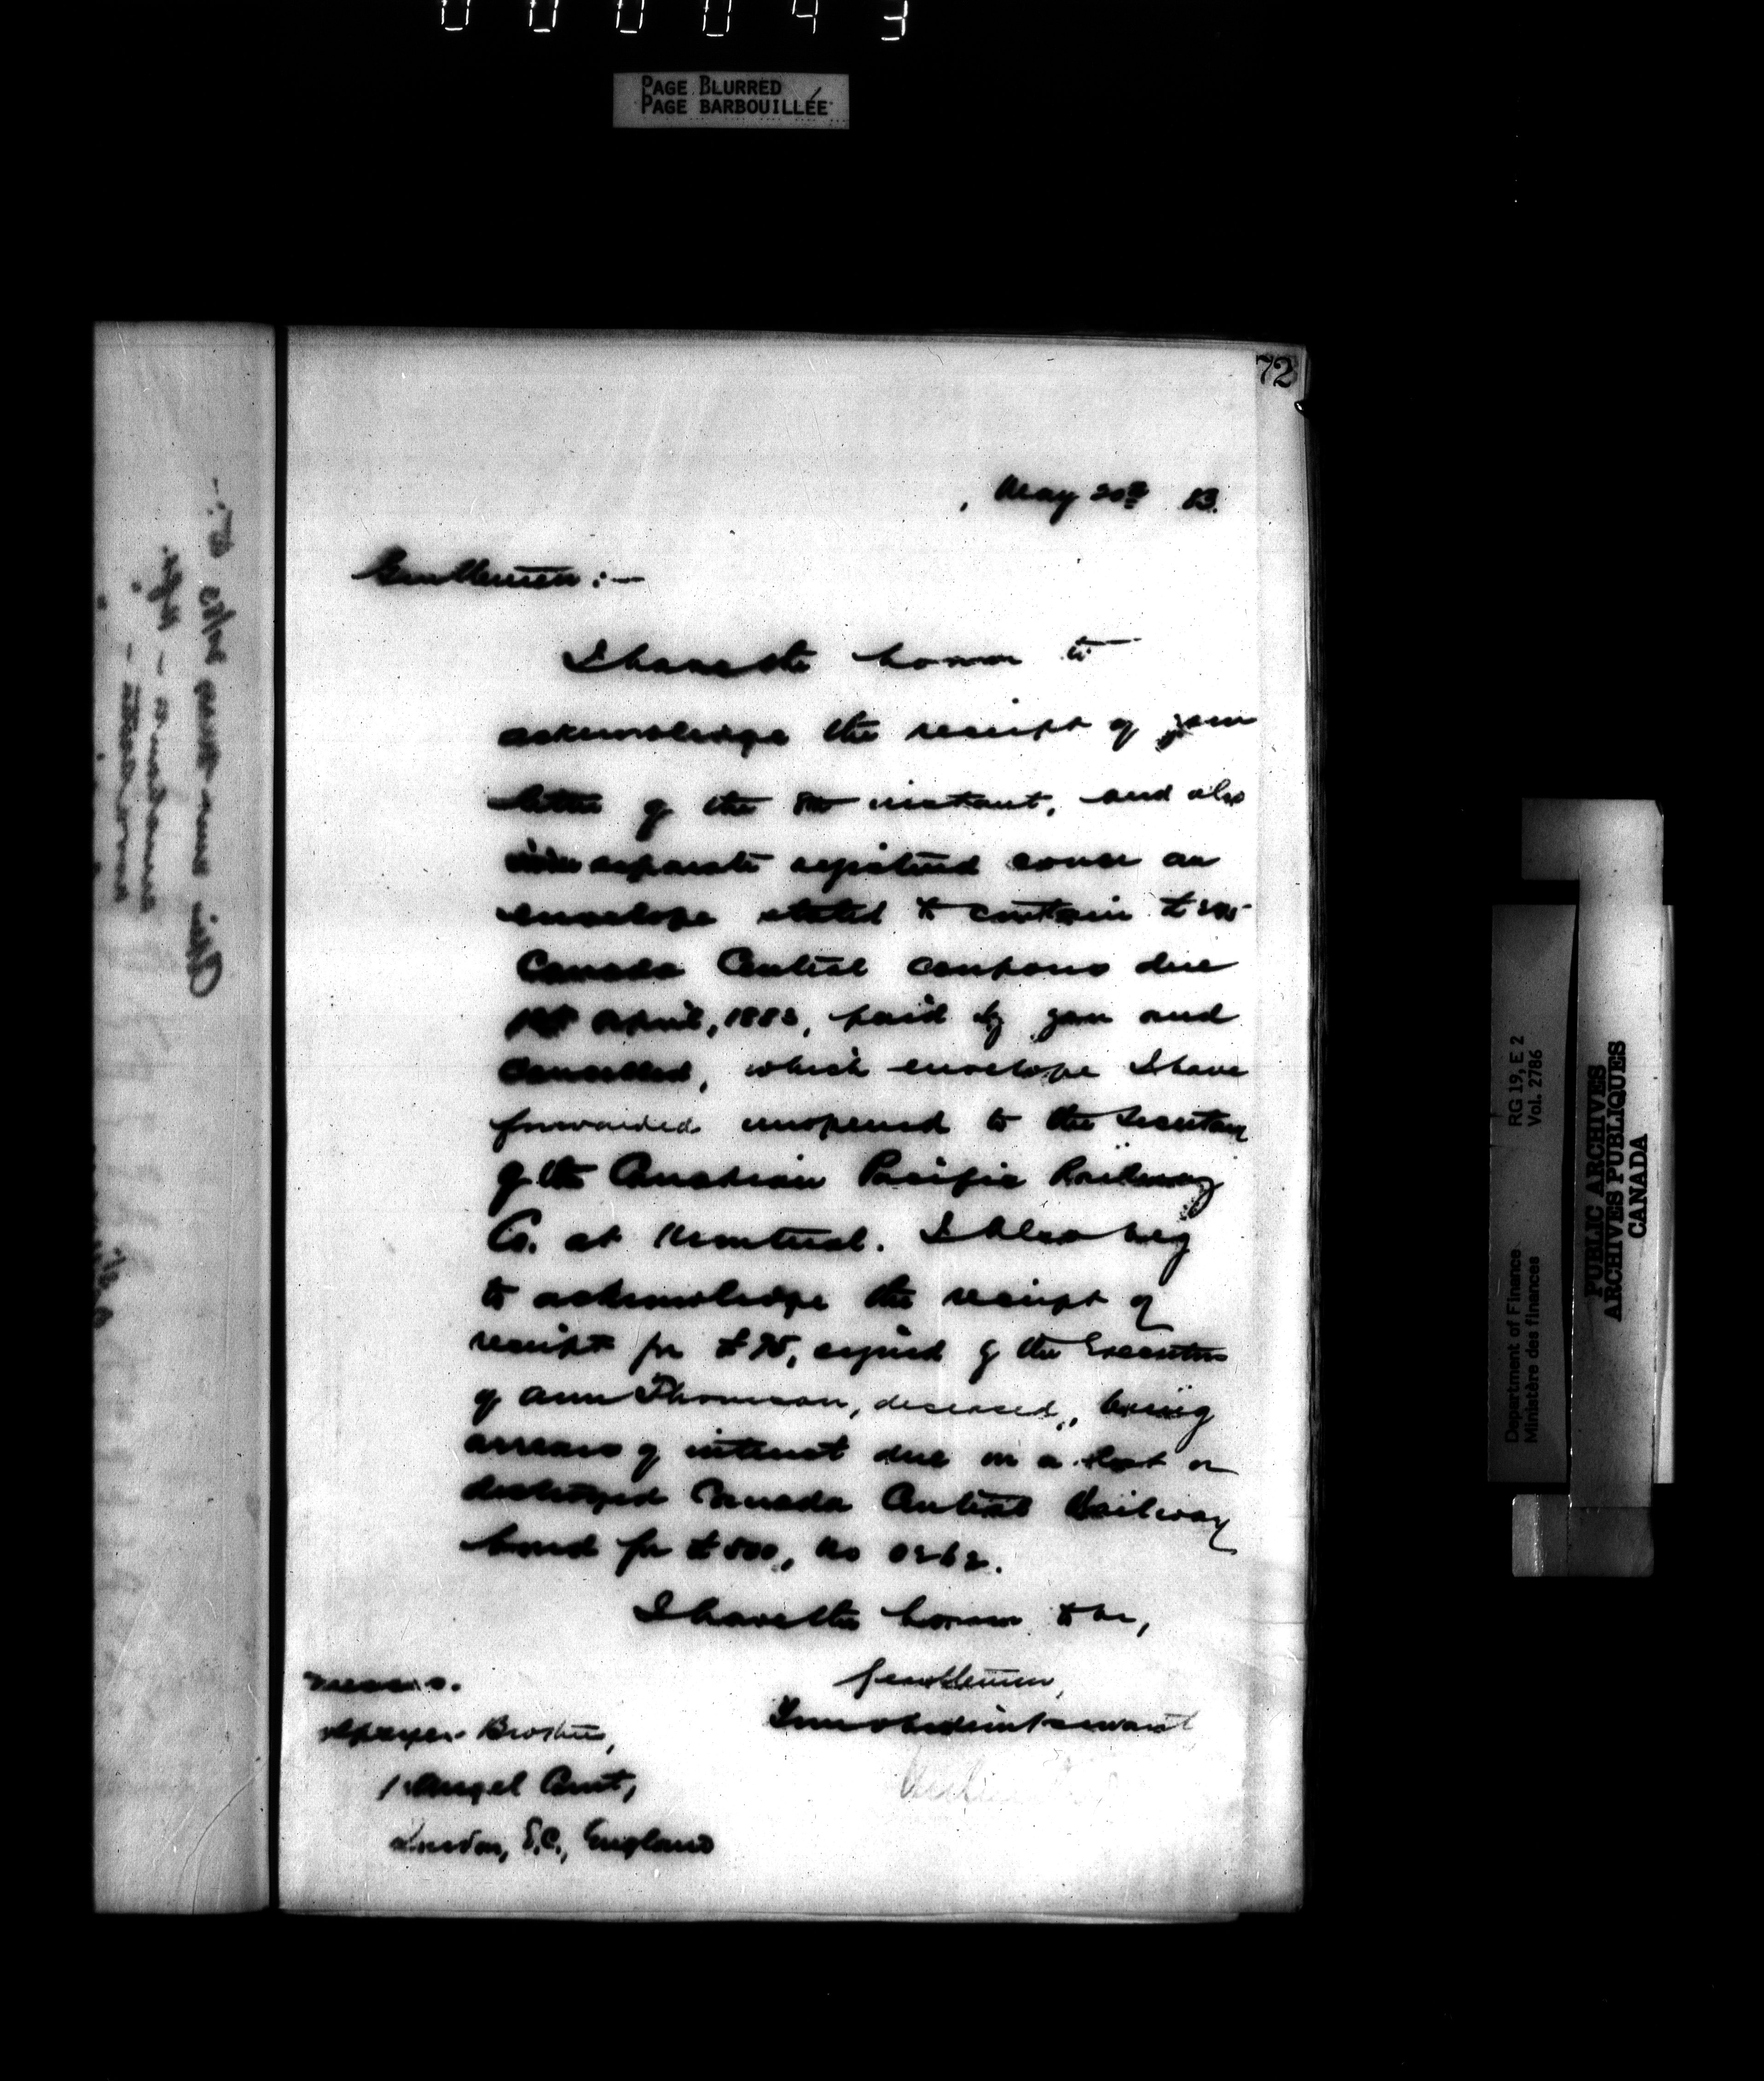 000043
PAGE BLURRED
PAGE BARBOUILLÉE
72
May 83.
Gentlemen:—
I have the honor to
acknowledge the receipt of your
letter of the 8th instant, and also
in separate registered cover an
envelope stated to contain
Canada Central coupons due
1st April, 1883, paid by you and
cancelled, which envelope I have
forwarded unopened to the Secretary
of the Canadian Pacific Railway
Co. at Montreal. I also beg
to acknowledge the receipt of
receipt for signed by the Executors
of Ann Thomson, deceased, being
arrears of interest due on a lost or
destroyed Canada Central Railway
bond for £500, No
I have the honor to be,
Gentlemen,
Your obedient servant
Messrs.
Brothers,
1 Angel Court,
London, E.C., England
Department of Finance
Ministère des finances
RG 19, E 2
Vol. 2786
PUBLIC ARCHIVES
ARCHIVES PUBLIQUES
CANADA